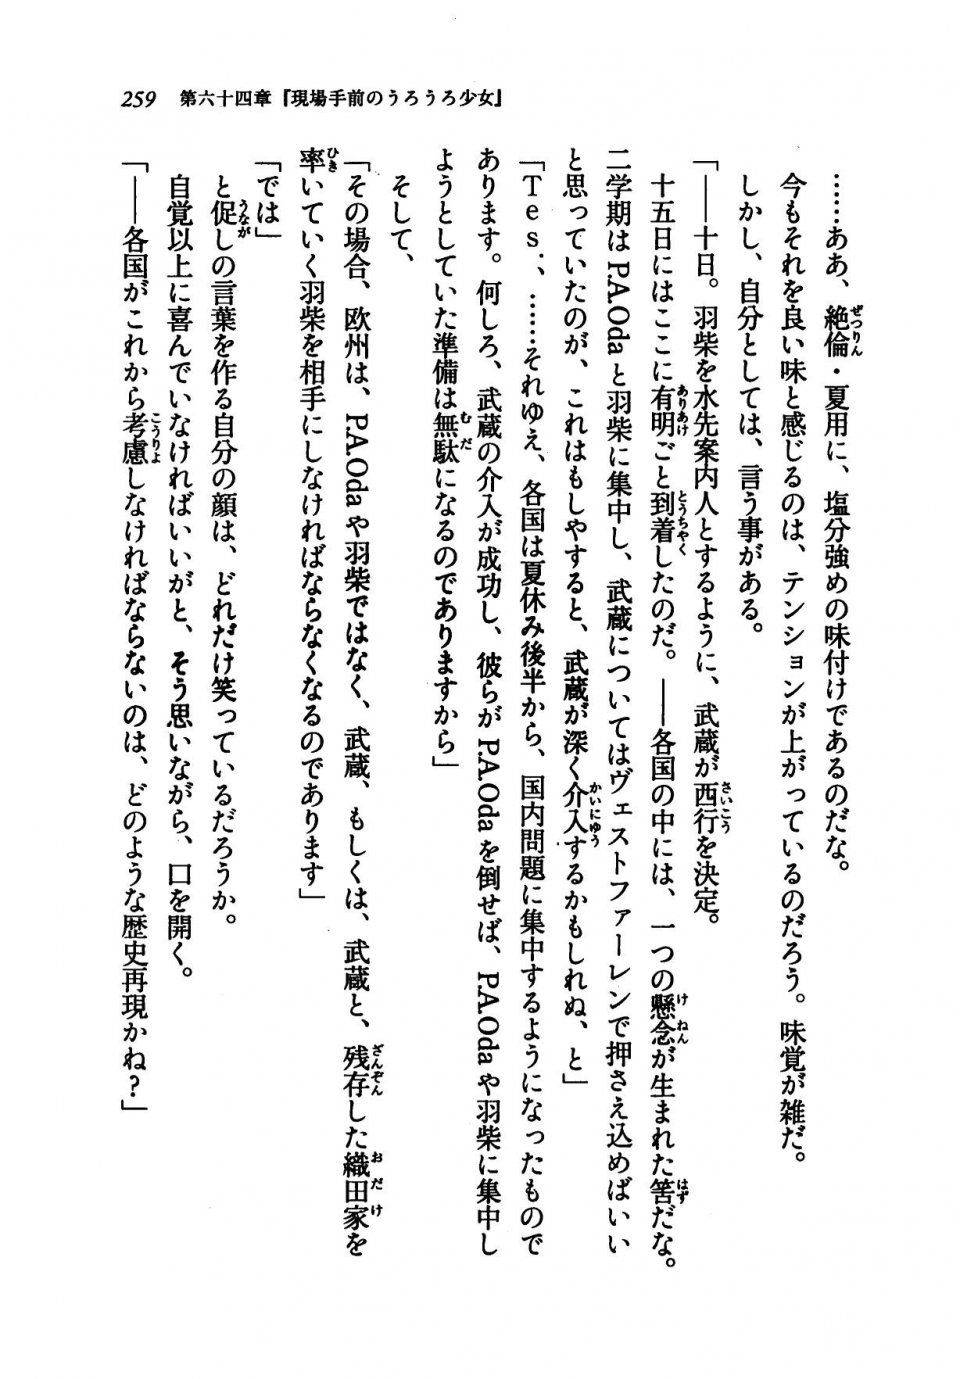 259　第六十四章『現場手前のうろうろ少女』
……ああ、絶倫・夏用に、塩分強めの味付けであるのだな。
今もそれを良い味と感じるのは、テンションが上がっているのだろう。味覚が雑だ。
しかし、自分としては、言う事がある。
「――十日。羽柴を水先案内人とするように、武蔵が西行を決定。
十五日にはここに有明ごと到着したのだ。――各国の中には、一つの懸念が生まれた筈だな。
二学期はP.A.Odaと羽柴に集中し、武蔵についてはヴェストファーレンで押さえ込めばいい
と思っていたのが、これはもしやすると、武蔵が深く介入するかもしれぬ、と」
「Tes.、……それゆえ、各国は夏休み後半から、国内問題に集中するようになったもので
あります。何しろ、武蔵の介入が成功し、彼らがP.A.Odaを倒せば、P.A.Odaや羽柴に集中し
ようとしていた準備は無駄になるのでありますから」
そして、
「その場合、欧州は、P.A.Odaや羽柴ではなく、武蔵、もしくは、武蔵と、残存した織田家を
率いていく羽柴を相手にしなければならなくなるのであります」
「では」
と促しの言葉を作る自分の顔は、どれだけ笑っているだろうか。
自覚以上に喜んでいなければいいがと、そう思いながら、口を開く。
「――各国がこれから考慮しなければならないのは、どのような歴史再現かね？」